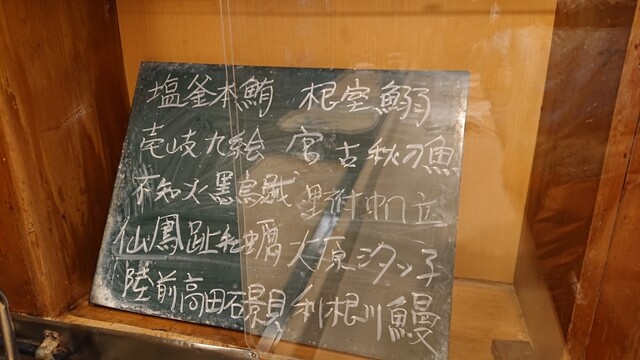 塩釜本鮪 根室鰯
壱岐九絵 宮古秋刀魚
不知火墨烏賊 野付帆立
仙鳳趾牡蠣 大原汐ッ子
陸前高田石影貝 利根川鰻